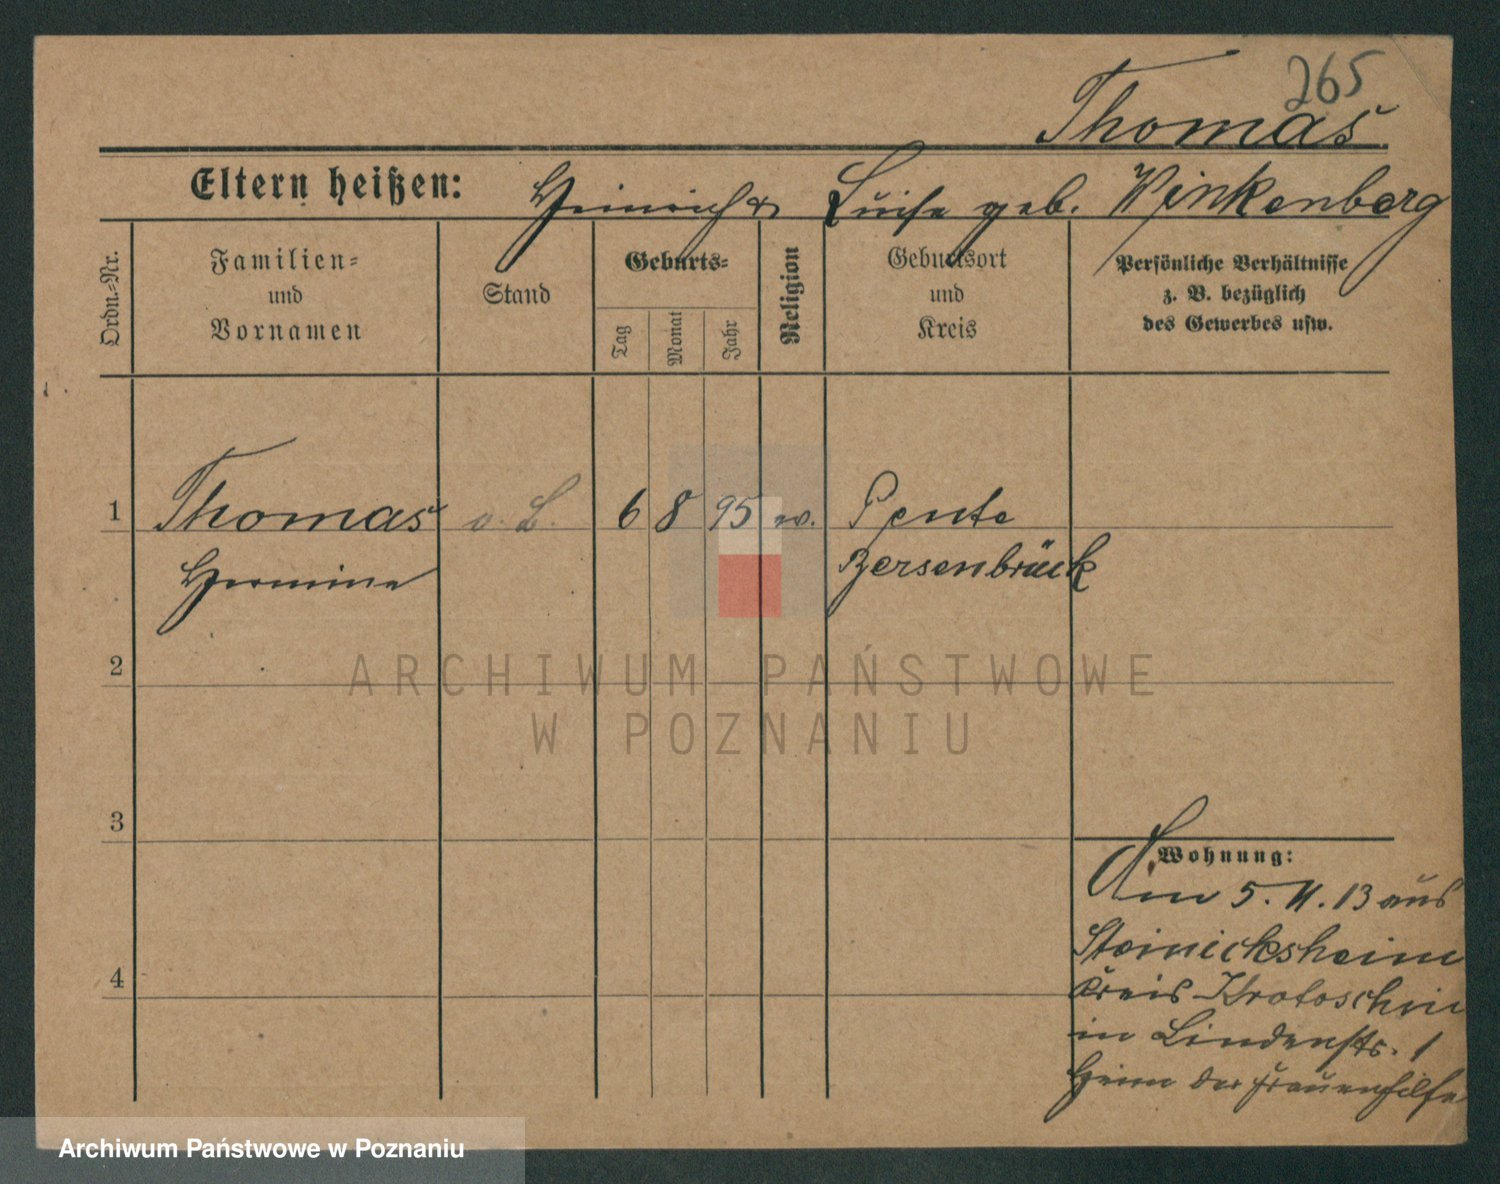 265
Thomas
Eltern heißen: Heinrich & Luise geb. Winkenberg
Ordn.=Nr.
Familien=
und
Vornamen
Stand
Geburts=
Tag
Monat
Jahr
Religion
Geburtsort
und
Kreis
Persönliche Verhältnisse
z. B. bezüglich
des Gewerbes usw.
1 Thomas o. B. 6 8 95 ev. Pente
Hermine Bersenbrück
2
ARCHIWUM PAŃSTWOWE
W POZNANIU
3
Wohnung:
Am 5. 11. 13 aus
Steinicksheim
Kreis Krotoschin
in Lindenstr. 1
Heim der Frauenhilfe
4
Archiwum Państwowe w Poznaniu